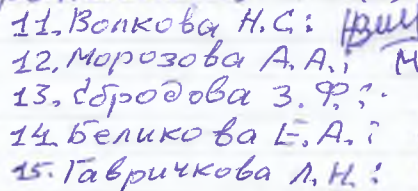 11. Волкова Н.С:
12. Морозова А.А.; М
13. Сбродова З.Ф.:
14. Беликова Е.А.:
15. Гавричкова Л.Н: